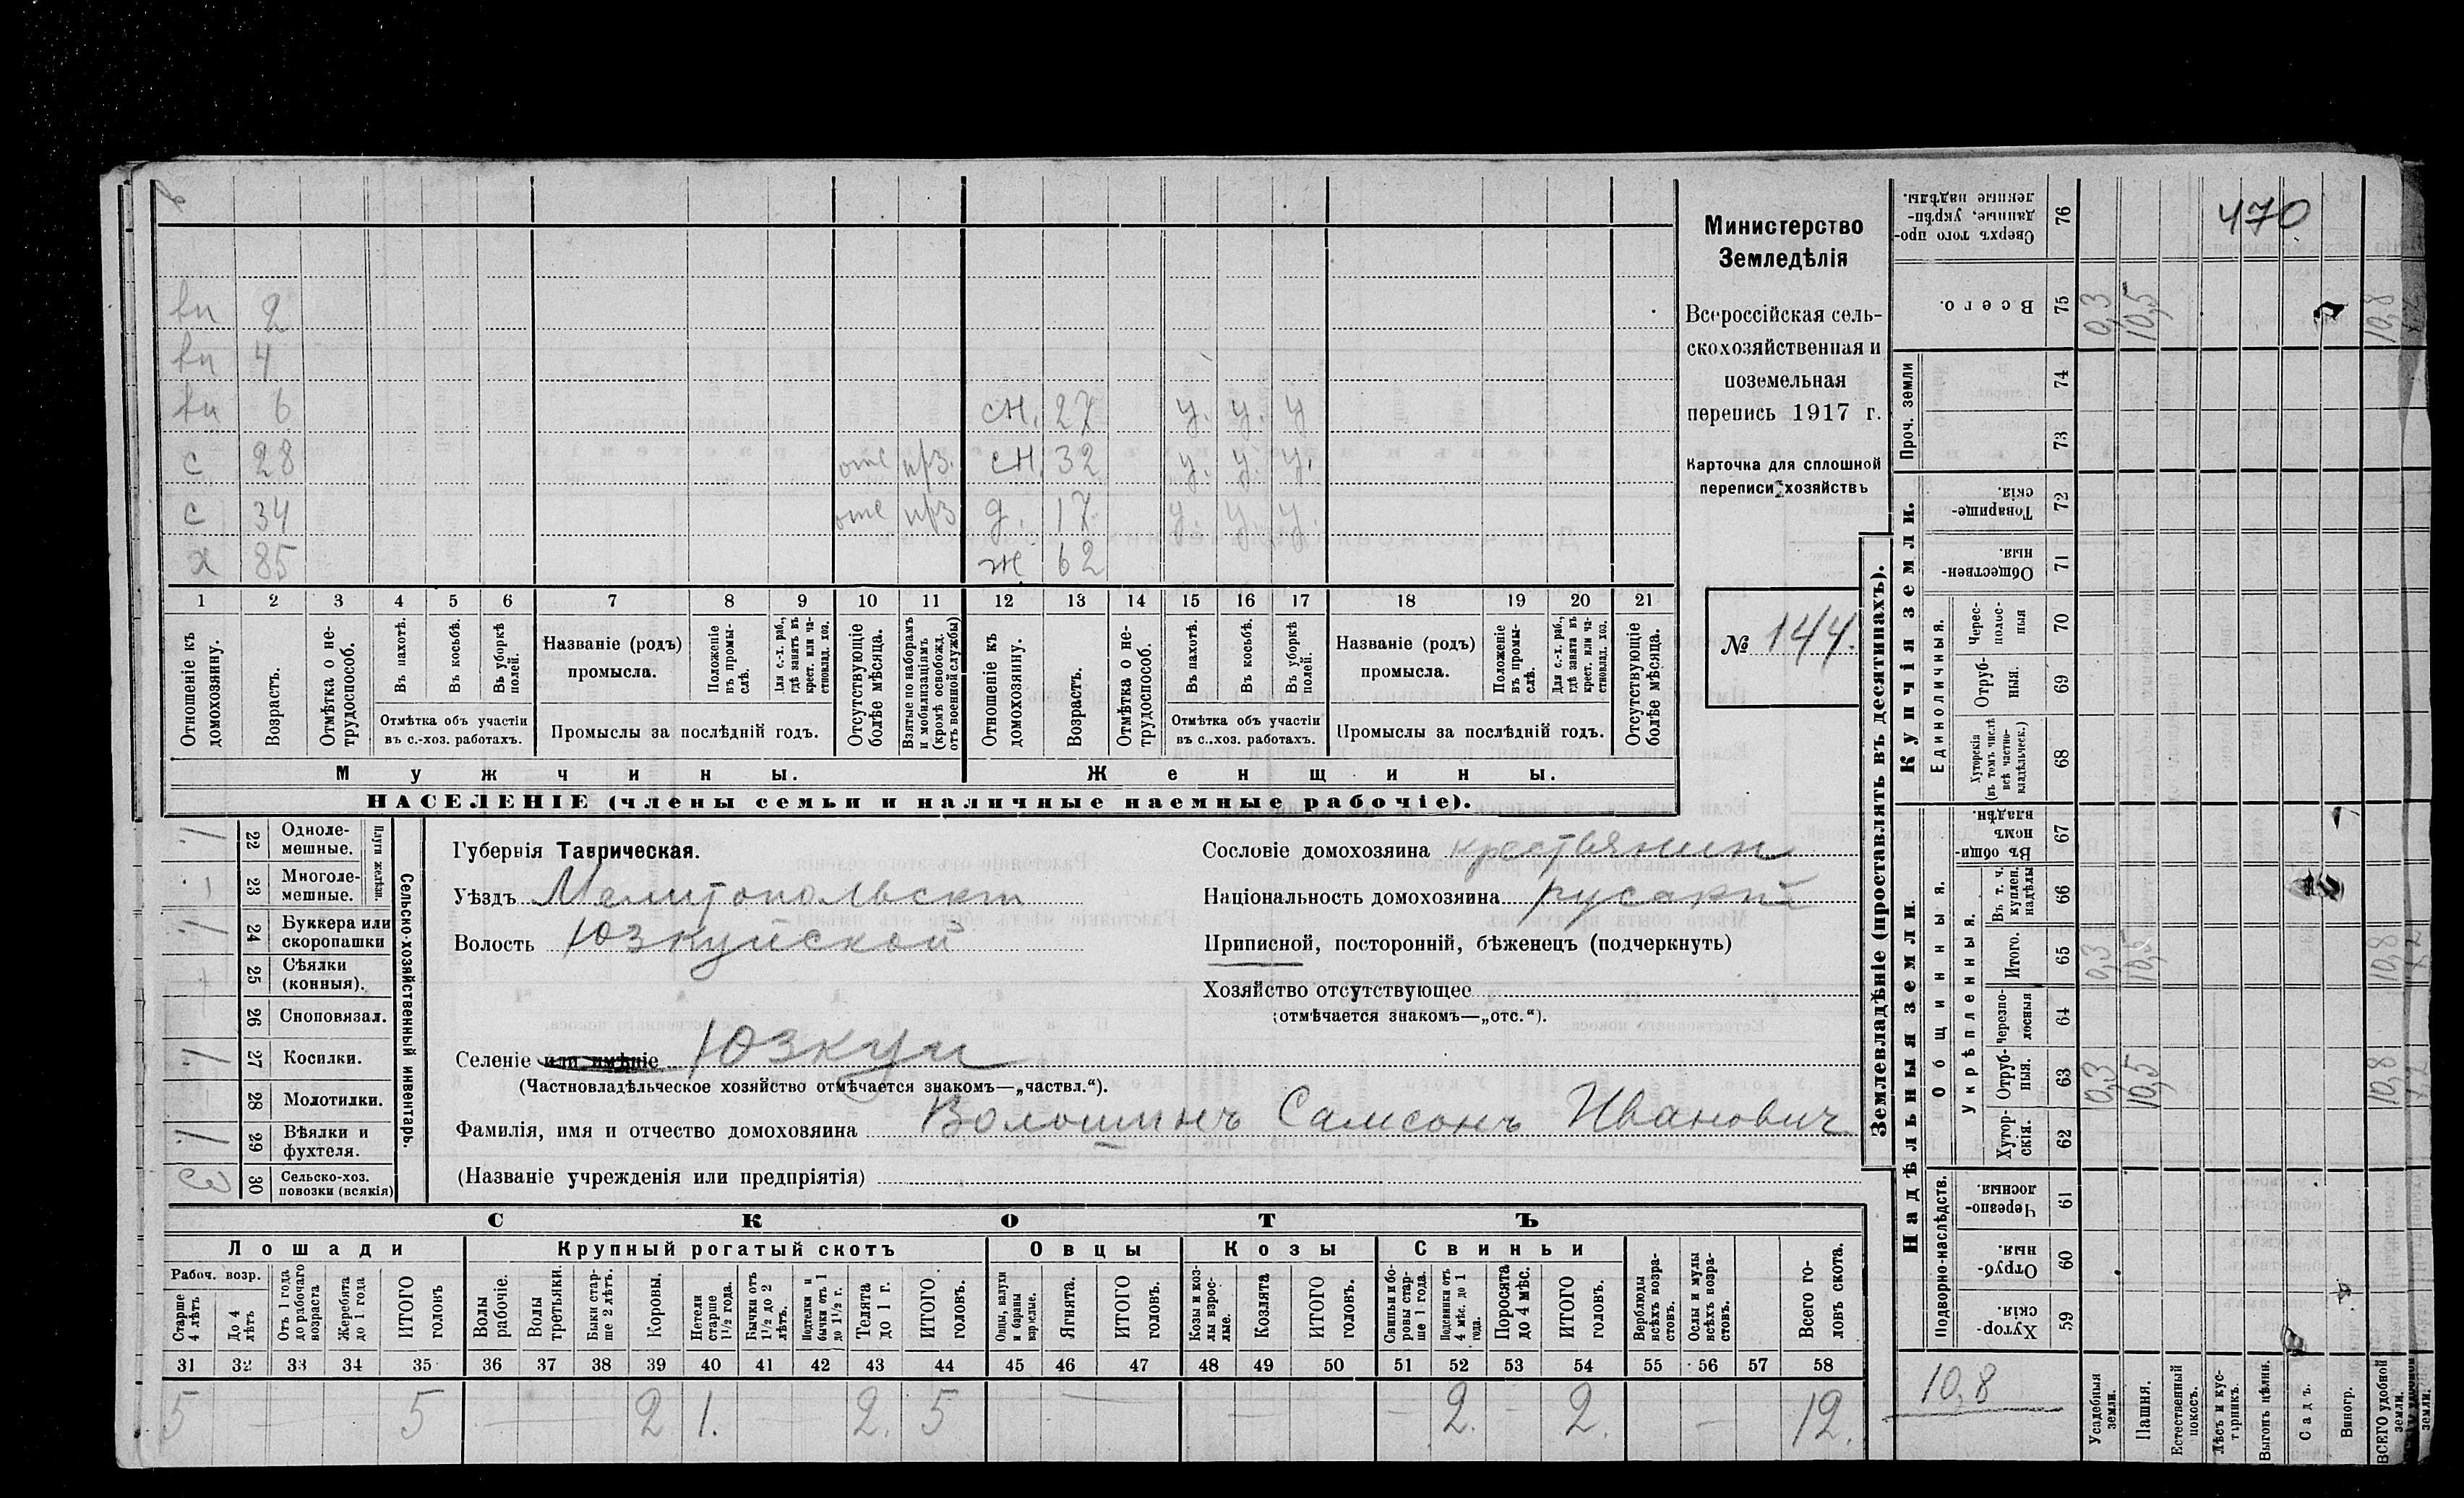 470
вн 2
вн 4
вн 6 сн. 27 у. у. у
с 28 отс прз. сн. 32 у. у. у.
с 34 отс прз д. 17 у. у. у.
х 85 ж 62
1 2 3 4 5 6 7 8 9 10 11 12 13 14 15 16 17 18 19 20 21
Отношеніе къ домохозяину.
Возрастъ.
Отмѣтка о не-трудоспособ.
Въ пахотѣ.
Въ косьбѣ.
Въ уборкѣ полей.
Отмѣтка объ участіи
въ с.-хоз. работахъ.
Названіе (родъ)
промысла.
Положеніе въ промы-слѣ.
Для с.-х. раб., гдѣ занятъ въ крест. или ча-стновлад. хоз.
Промыслы за послѣдній годъ.
Отсутствующіе болѣе мѣсяца.
Взятые по наборамъ и мобилизаціямъ (кромѣ освобожд. отъ военной службы)
Отношеніе къ домохозяину.
Возрастъ.
Отмѣтка о не-трудоспособ.
Въ пахотѣ.
Въ косьбѣ.
Въ уборкѣ полей.
Отмѣтка объ участіи
въ с..хоз. работахъ.
Названіе (родъ)
промысла.
Положеніе въ промы-слѣ.
Для с.-х. раб., гдѣ занята въ крест. или ча-стновлад. хоз.
Промыслы за послѣдній годъ.
Отсутствующіе болѣе мѣсяца.
Мужчины.
Женщины.
НАСЕЛЕНІЕ (члены семьи и наличные наемные рабочіе).
Министерство
Земледѣлія
Всероссійская сель-
скохозяйственная и
поземельная
перепись 1917 г.
Карточка для сплошной
переписи хозяйствъ
№ 144.
Сельско-хозяйственный инвентарь.
Плуги желѣзн.
22 Одноле-мешные. 1
23 Многоле-мешные. 1
24 Буккера или скоропашки 1
25 Сѣялки (конныя).
26 Сноповязал.
27 Косилки. 1
28 Молотилки.
29 Вѣялки и фухтеля. 1
30 Сельско-хоз. повозки (всякія) 3
Губернія Таврическая.
Уѣздъ Мелитопольскій
Волость Юзкуйской
Селеніе или имѣніе Юзкуи
(Частновладѣльческое хозяйство отмѣчается знакомъ—„частвл.“).
Фамилія, имя и отчество домохозяина Волошинъ Самсонъ Иванович
(Названіе учрежденія или предпріятія)
Сословіе домохозяина крестьянин
Національность домохозяина русскій
Приписной, посторонній, бѣженецъ (подчеркнуть)
Хозяйство отсутствующее
(отмѣчается знакомъ—„отс.“).
СКОТЪ
Лошади Крупный рогатый скотъ Овцы Козы Свиньи
Рабоч. возр.
Старше 4 лѣтъ
До 4 лѣтъ
Отъ 1 года до рабочаго возраста
Жеребята до 1 года
ИТОГО головъ
Волы рабочіе.
Волы третьяки.
Быки стар-ше 2 лѣтъ.
Коровы.
Нетели старше 1½ года.
Бычки отъ 1½ до 2 лѣтъ.
Подтелки и бычки отъ 1 до 1½ г.
Телята до 1 г.
ИТОГО головъ.
Овцы, валухи и бараны взрослые.
Ягнята.
ИТОГО головъ.
Козы и коз-лы взрос-лые.
Козлята
ИТОГО головъ.
Свиньи и бо-ровы стар-ше 1 года.
Подсвинки отъ 4 мѣс. до 1 года.
Поросята до 4 мѣс.
ИТОГО головъ.
Верблюды всѣхъ возра-стовъ.
Ослы и мулы всѣхъ возра-стовъ.
Всего го-ловъ скота.
31 32 33 34 35 36 37 38 39 40 41 42 43 44 45 46 47 48 49 50 51 52 53 54 55 56 57 58
5 — — 5 — — 2 1. — 2. 5 — — — — 2. — 2. — 12.
Землевладѣніе (проставлять въ десятинахъ).
Купчія земли.
Надѣльныя земли.
Сверхъ того про-данные, укрѣп-ленные надѣлы. 76
Всего. 75 0,3 10,5 10,8
Проч. земли 74
73
Товарище-скія. 72
Обществен-ныя. 71
Единоличныя.
Черес-полос-ныя 70
Отруб-ныя. 69
Хуторскія (въ томъ числѣ всѣ частно-владѣльческ.) 68
Общинныя.
Въ общи-номъ владѣн. 67
Укрѣпленныя.
Въ т. ч. куплен. надѣлы 66
Итого. 65 0,3 10,5 10,8
Черезпо-лосныя 64
Отруб-ныя. 63 0,3 10,5 10,8
Хутор-скія. 62
Подворно-наслѣдств.
Черезпо-лосныя. 61
Отруб-ныя. 60
Хутор-скія. 59
10,8
Усадебныя земли.
Пашня.
Естественный покосъ.
Лѣсъ и кус-тарникъ.
Выгонъ цѣлин.
Садъ.
Виногр.
ВСЕГО удобной земли.